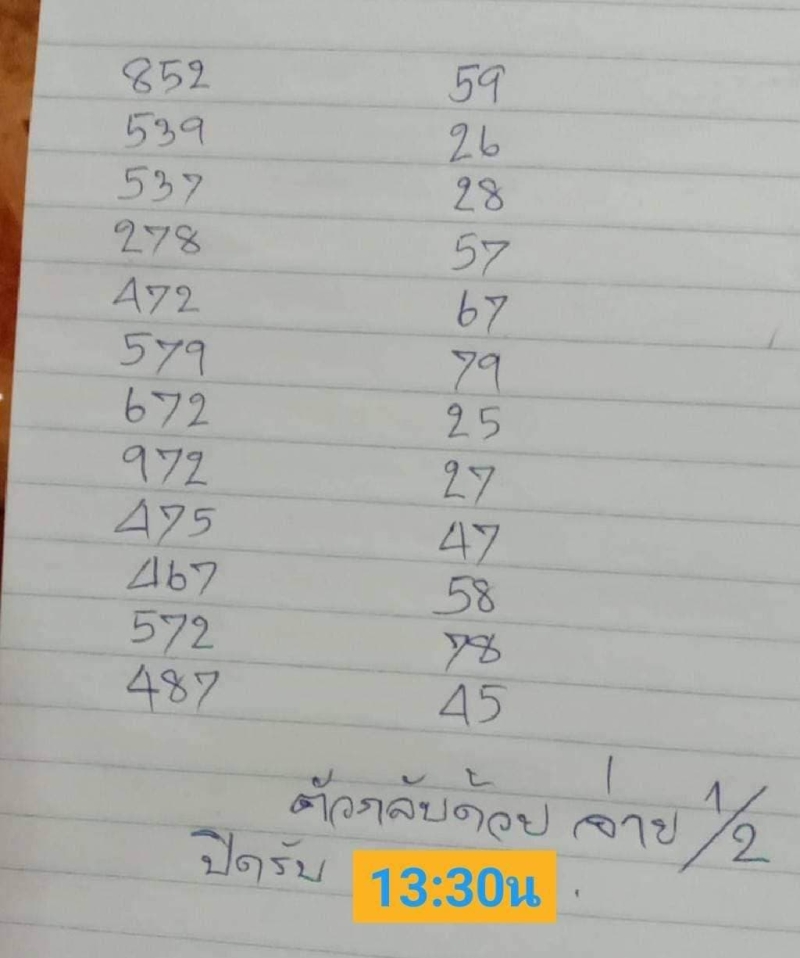 852 59
539 26
537 28
278 57
472 67
579 79
672 25
972 27
475 47
467 58
572 78
487 45
ตัวกลับด้วย จ่าย 1/2
ปิดรับ 13:30น.